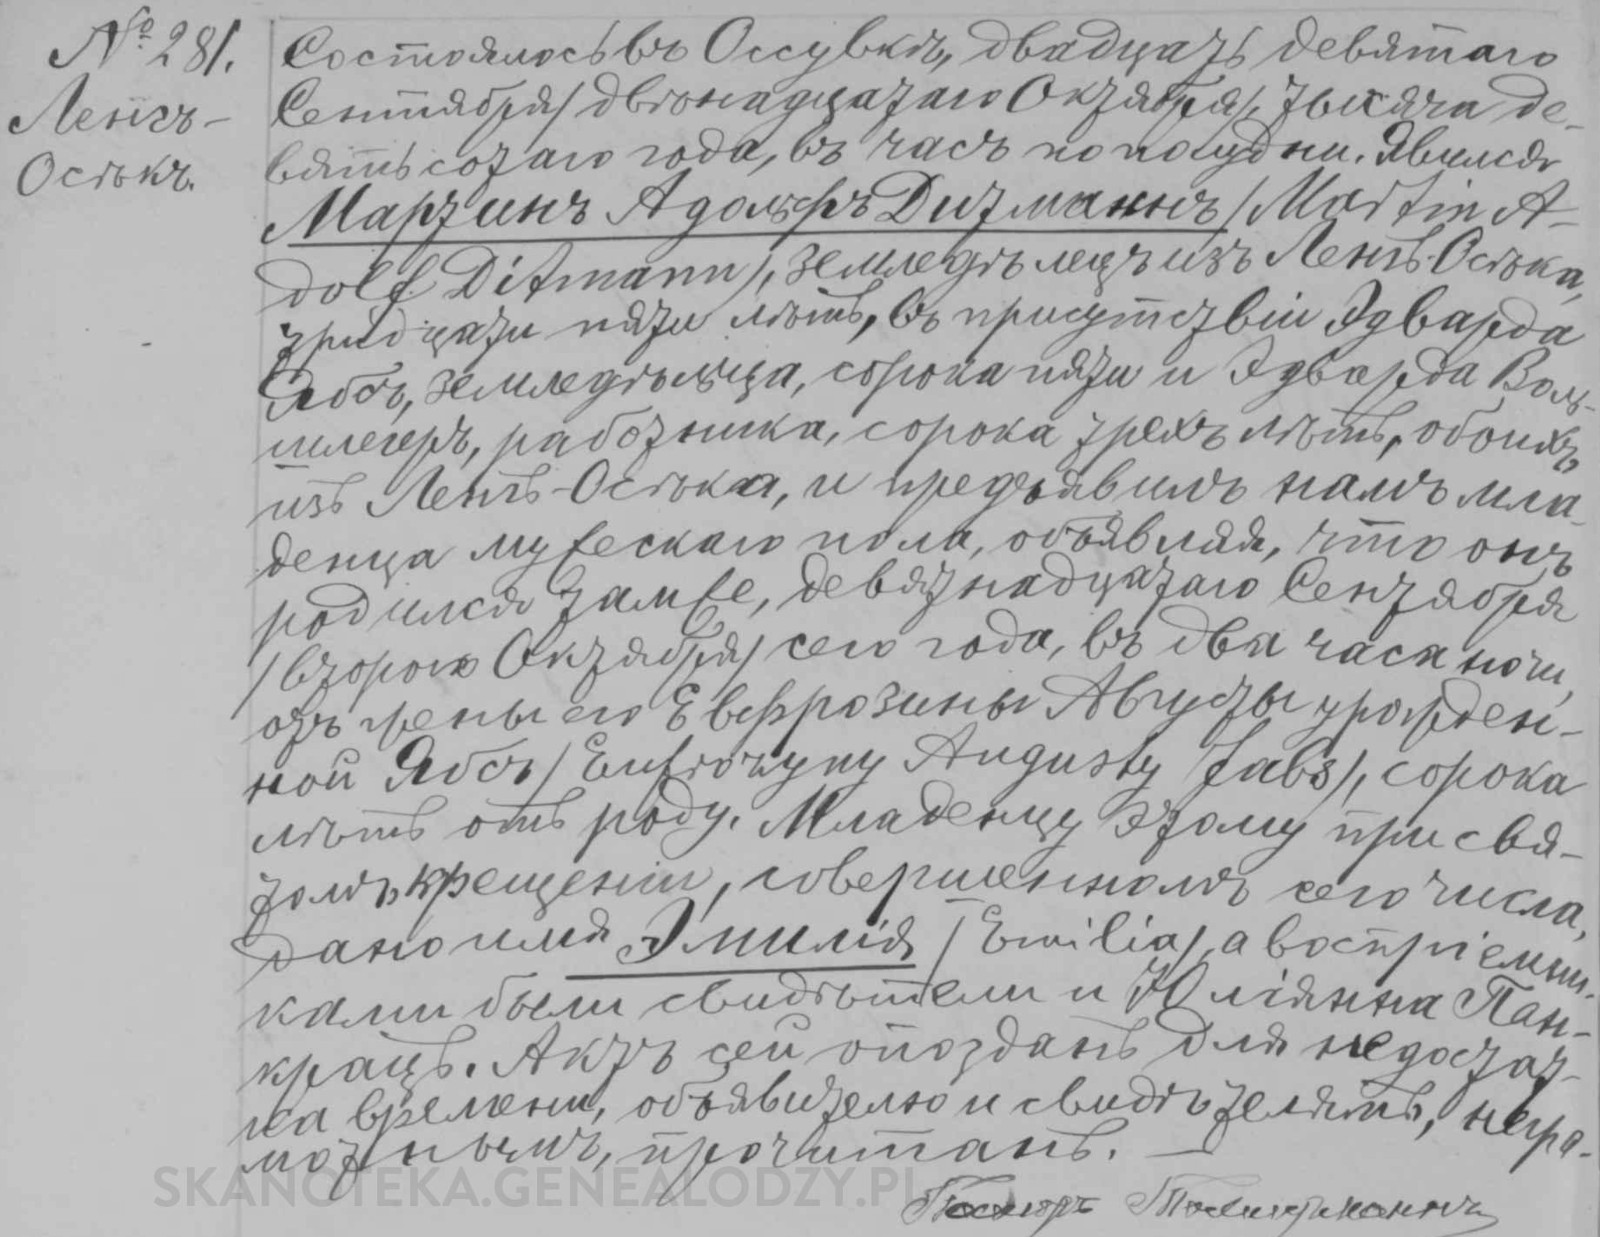 № 281.
Ленгъ-
Оськъ.
Состоялось въ Оссувкѣ, двадцать девятаго
Сентября/двѣнадцатаго Октября/, тысяча де-
вятьсотаго года, въ часъ по полудни. Явился
Мартинъ Адольфъ Дитманнъ /Martin A-
dolf Ditmann/, земледѣлецъ изъ Ленгъ-Осѣка,
тридцати пяти лѣтъ, въ присутствіи Эдварда
Ябсъ, земледѣльца, сорока пяти и Эдварда Воль-
шлегеръ, работника, сорока трехъ лѣтъ, обоихъ
изъ Ленгъ-Осѣка, и предъявилъ намъ мла-
денца мужескаго пола, объявляя, что онъ
родился тамже, девятнадцатаго Сентября
/втораго Октября/ сего года, въ два часа ночи,
отъ жены его Евфрозины Августы урожден-
ной Ябсъ/Eufrozyny Augusty Jabs/, сорока
лѣтъ отъ роду. Младенцу этому при свя-
томъ крещеніи, совершенномъ сего числа,
дано имя Эмилія /Emilia/, а воспріемни-
ками были свидѣтели и Юліянна Пан-
крацъ. Актъ сей опозданъ для недостат-
ка времени, объявителю и свидѣтелямъ, негра-
мотнымъ, прочитанъ.
SKANOTEKA.GENEALODZY.PL
Пасторъ